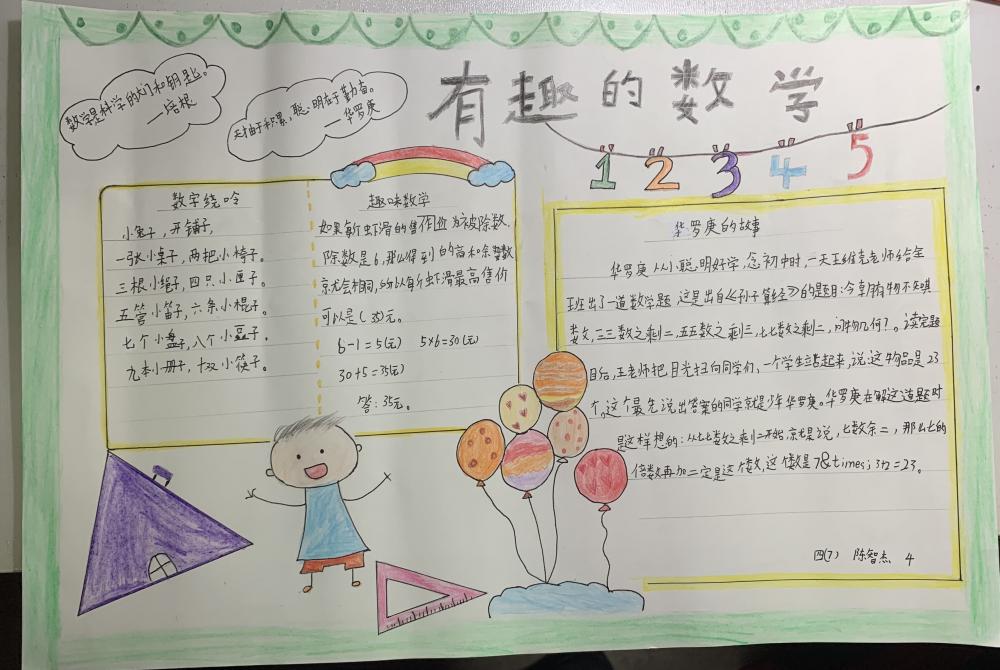 有趣的数学
数学是科学的大门和钥匙。
—培根
才由于积累,聪明在于勤奋。
—华罗庚
1 2 3 4 5
数字绕呤
小兔子,开铺子,
一张小桌子,两把小椅子。
三根小绳子,四只小匣子。
五管小笛子,六条小棍子。
七个小盘子,八个小豆子。
九本小册子,十双小筷子。
趣味数学
如果每斤虾滑的售价为被除数,
除数是6,那么得到的商和余数
就会相同,所以每斤虾滑最高售价
可以是(35)元。
6-1=5(元) 5×6=30(元)
30+5=35(元)
答:35元。
华罗庚的故事
华罗庚从小聪明好学,念初中时,一天王维克老师给全
班出了一道数学题,这是出自《孙子算经》的题目:今有物不知其
数,三三数之剩二,五五数之剩三,七七数之剩二,问物几何?。读完题
目后,王老师把目光扫向同学们、一个学生站起来,说:这物品是23
个,这个最先说出答案的同学就是少年华罗庚。华罗庚在解这道题时
是这样想的:从七七数之剩二开始,就是说,七数余二,那么七的
倍数再加二定是这个数,这个数是7&times;3+2=23。
四(7) 陈智杰 4